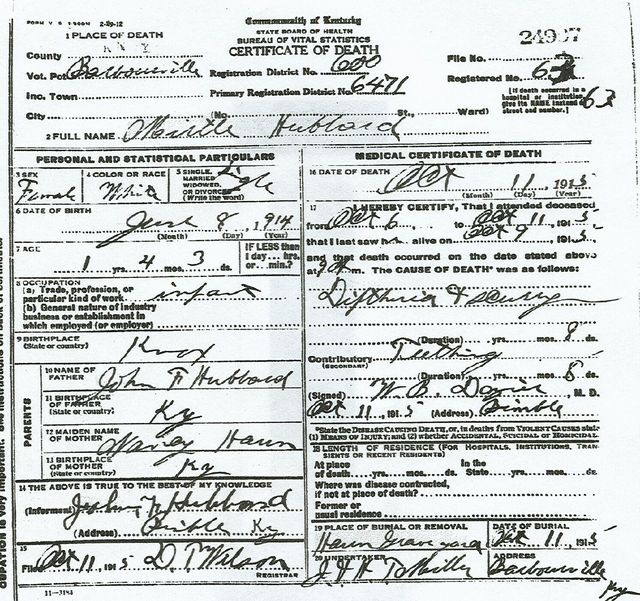 FORM V. S. 1 2-29-12
Commonwealth of Kentucky
STATE BOARD OF HEALTH
BUREAU OF VITAL STATISTICS
CERTIFICATE OF DEATH
24997
1 PLACE OF DEATH
County
Vot. Pct. Barbourville
Inc. Town
City
Registration District No. 600
Primary Registration District No. 6471
(No. St., Ward)
File No.
Registered No. 63
[If death occurred in a hospital or institution give its NAME instead of street and number.]
63
2 FULL NAME Mirtle Hubbard
PERSONAL AND STATISTICAL PARTICULARS
3 SEX Female
4 COLOR OR RACE White
5 SINGLE, MARRIED WIDOWED, OR DIVORCED (Write the word) Single
6 DATE OF BIRTH June 8, 1914
(Month) (Day) (Year)
7 AGE 1 yrs. 4 mos. 3 ds.
IF LESS than 1 day, hrs. or min.?
8 OCCUPATION
(a) Trade, profession, or particular kind of work infant
(b) General nature of industry business or establishment in which employed (or employer)
9 BIRTHPLACE (State or country) Knox
PARENTS
10 NAME OF FATHER John F Hubbard
11 BIRTHPLACE OF FATHER (State or country) Ky
12 MAIDEN NAME OF MOTHER Nancy Hamn
13 BIRTHPLACE OF MOTHER (State or country) Ky
14 THE ABOVE IS TRUE TO THE BEST OF MY KNOWLEDGE
(Informant) John F Hubbard
(Address) Bimble Ky
15
Filed Oct 11, 1915 D. T. Wilson
REGISTRAR
11-3184
MEDICAL CERTIFICATE OF DEATH
16 DATE OF DEATH Oct 11, 1915
(Month) (Day) (Year)
17 I HEREBY CERTIFY, That I attended deceased
from Oct 6 to Oct 11, 1915
that I last saw h alive on Oct 9, 1915
and that death occurred on the date stated above
at m. The CAUSE OF DEATH* was as follows:
Diptheria &
(Duration) yrs. mos. 8 ds.
Contributory (SECONDARY) Teething
(Duration) yrs. mos. 8 ds.
(Signed) W. B. M. D.
Oct 11, 1915 (Address) Bimble
*State the DISEASE CAUSING DEATH, or, in deaths from VIOLENT CAUSES state (1) MEANS OF INJURY; and (2) whether ACCIDENTAL, SUICIDAL OR HOMICIDAL.
18 LENGTH OF RESIDENCE (FOR HOSPITALS, INSTITUTIONS, TRANSIENTS OR RECENT RESIDENTS)
At place of death yrs. mos. ds. In the State yrs. mos. ds.
Where was disease contracted, if not at place of death?
Former or usual residence
19 PLACE OF BURIAL OR REMOVAL Hamn Graveyard
DATE OF BURIAL Oct 11, 1915
20 UNDERTAKER J F H T Miller
ADDRESS Barbourville
Ky